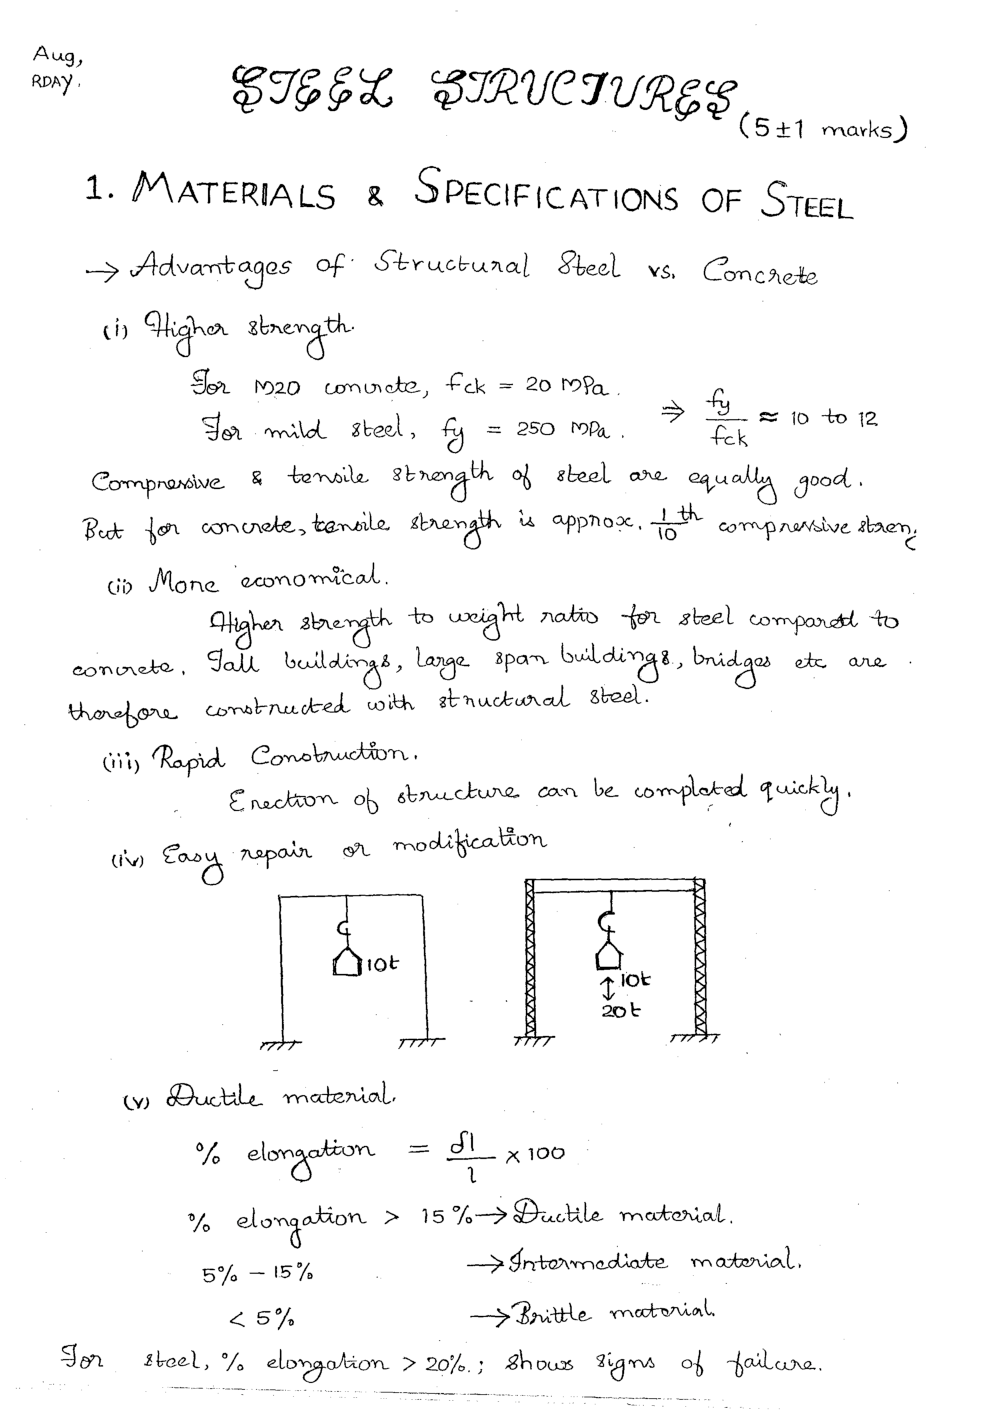 Aug,
RDAY.
STEEL STRUCTURES
(5±1 marks)
1. MATERIALS & SPECIFICATIONS OF STEEL
→ Advantages of Structural Steel vs. Concrete
(i) Higher strength.
For M20 concrete, fck = 20 MPa.
For mild steel, fy = 250 MPa.
⇒ fy/fck ≈ 10 to 12
Compressive & tensile strength of steel are equally good.
But for concrete, tensile strength is approx. 1/10 th compressive stren
(ii) More economical.
Higher strength to weight ratio for steel compared to
concrete. Tall buildings, large span buildings, bridges etc are
therefore constructed with structural steel.
(iii) Rapid Construction.
Erection of structure can be completed quickly.
(iv) Easy repair or modification
10t
10t
20t
(v) Ductile material.
% elongation = δl/l × 100
% elongation > 15% → Ductile material.
5% – 15% → Intermediate material.
< 5% → Brittle material.
For steel, % elongation > 20%. ; shows signs of failure.